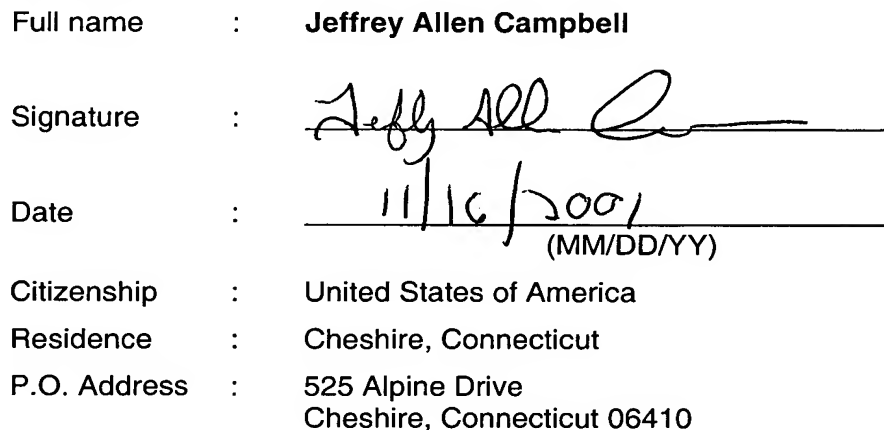 Full name : Jeffrey Allen Campbell
Signature : Jeffy All C
Date : 11/16/2001
(MM/DD/YY)
Citizenship : United States of America
Residence : Cheshire, Connecticut
P.O. Address : 525 Alpine Drive
Cheshire, Connecticut 06410